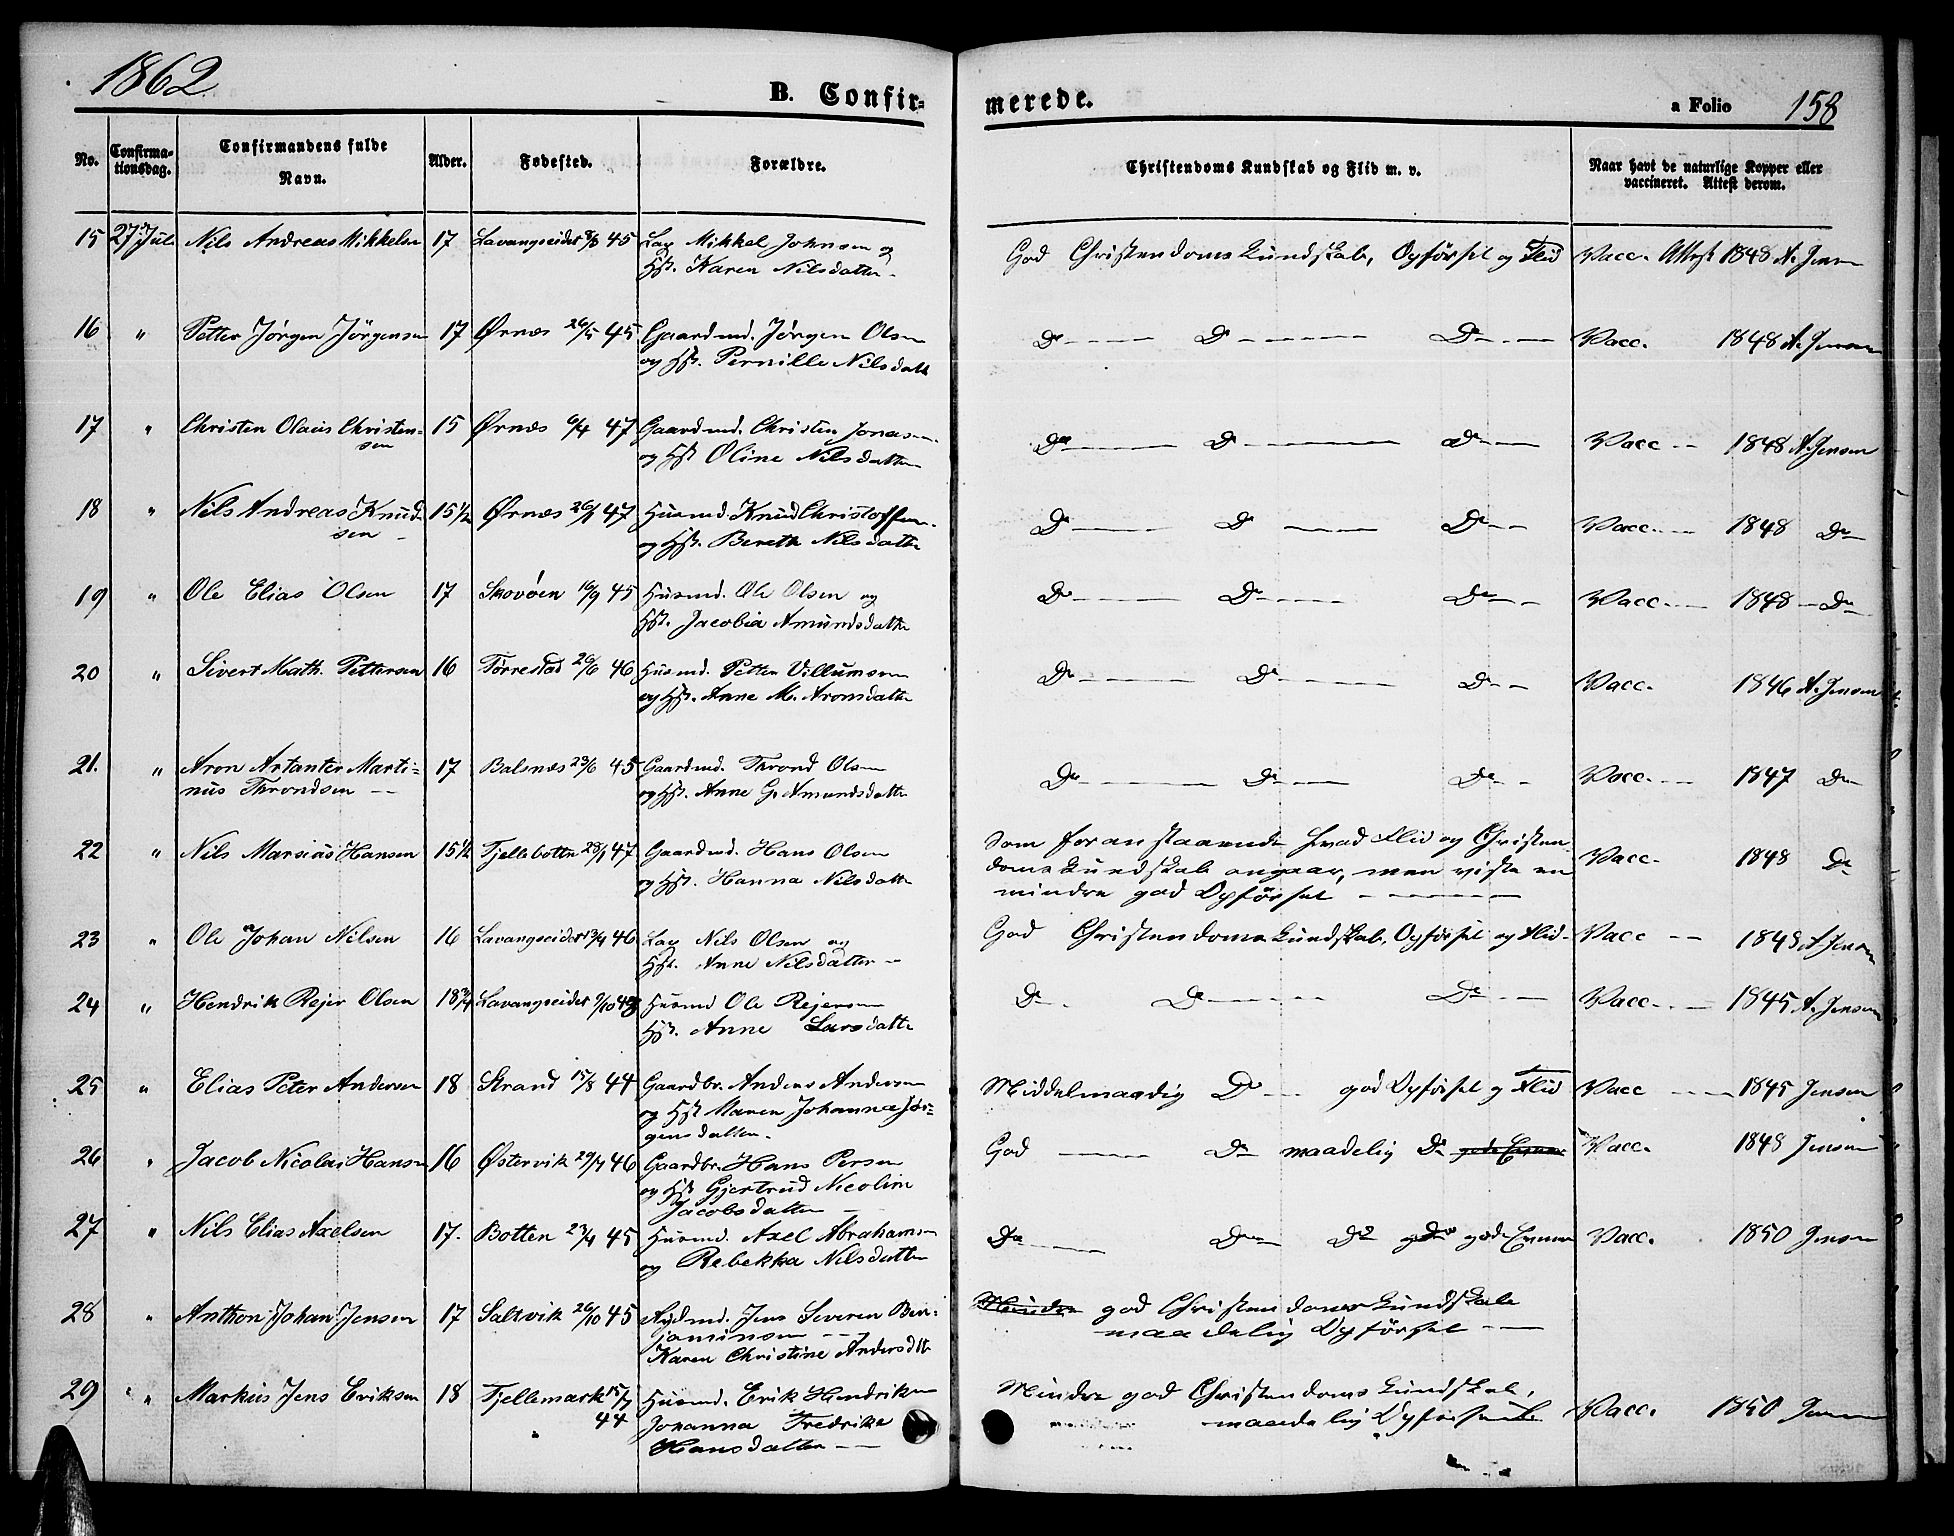 1862.
B. Confir-
merede.
a Folio 158
No. Confirma-tionsdag. Confirmandens fulde Navn. Alder. Fødested. Forældre. Christendoms Kundskab og Flid m. v. Naar havt de naturlige Kopper eller vaccineret. Attest derom.
15 27 Juli Nils Andreas Mikkelsen 17 Lavangseidet 45 Mikkel Johnsen og God Christendoms Kundskab, Opførsel og Flid Vacc. Attest 1848 A. Jensen
Hst. Karen Nilsdatter
16 " Petter Jörgen Jörgensen 17 Ørnæs 26/5 45 Gaardmd. Jörgen Olsen Do Do Do Vacc. 1848 A. Jensen
og Hst. Pernille Nilsdatt
17 " Christen Olaus Christen- 15 Ørnæs 6/4 47 Gaardmd. Christen Jonasen Do Do Do Vacc 1848 A. Jensen
sen og Hst Oline Nilsdatter
18 " Nils Andreas Knud- 15 1/2 Ørnæs 47 Husmd. Knud Christoffersen Do Do Do Vacc. 1848 Do
sen og Hst. Bereth Nilsdatter
19 " Ole Elias Olsen 17 Skovöen 16/9 45 Husmd. Ole Olsen og Do Do Do Vacc. 1848 Do
Hst. Jacobia Amundsdatter
20 " Sivert Math. Pettersen 16 Törrestad 26/6 46 Husmd. Petter Villumsen Do Do Do Vacc. 1846 A. Jensen
og Hst. Anne M. Aronsdatter
21. " Aron Artanter Marti- 17 Balsnæs 23/6 45 Gaardmd. Thrond Olsen Do Do Do Vacc. 1847 Do
nus Throndsen og Hst. Anne G. Amundsdatter
22 " Nils Marsias Hansen 15 1/2 Fjellebotten 28/1 47 Gaardmd. Hans Olsen Som foranstaaende hvad Flid og Christen- Vacc. 1848 Do
og Hst. Hanna Nilsdatter doms Kundskab angaar, men viste en
mindre god Opførsel
23 " Ole Johan Nilsen 16 Lavangseidet 13/4 46 Nils Olsen og God Christendoms Kundskab, Opførsel og Flid Vacc 1848 A Jensen
Hst. Anne Nilsdatter
24 " Hendrik Rejer Olsen 18 3/4 Lavangseidet 9/10 43 Husmd Ole Rejersen Do Do Do Vacc. 1845 A. Jensen
Hst. Anne Larsdatter
25 " Elias Peter Andersen 18 Strand 15/8 44 Gaardbr. Anders Andersen Middelmaadig Do god Opførsel og Flid Vacc 1845 Jensen
og Hst Maren Johanna Jör-
gensdatter.
26 " Jacob Nicolai Hansen 16 Østervik 29/7 46 Gaardbr. Hans Persen God Do maadelig Do Vacc. 1848 Jensen
og Hst Gjertrud Nicoline
Jacobsdatter
27 " Nils Elias Axelsen 17. Botten 23/4 45 Husmd. Axel Abrahams Do Do Do gode Evner Vacc. 1850 Jensen
og Rebekka Nilsdatter
28 " Anthon Johan Jensen 17 Saltvik 26/10 45 Jens Severen Ben- Mindre god Christendoms Kundskab
jaminsen maadelig Opførsel
Karen Christine Andersdtr
29 " Markus Jens Eriksen 18 Fjellemark 15/7 Husmd. Erik Hendriksen Mindre god Christendoms Kundskab, Vacc. 1850 Jensen
44 Johanna Fredrikke maadelig Opførsel
Hansdatter